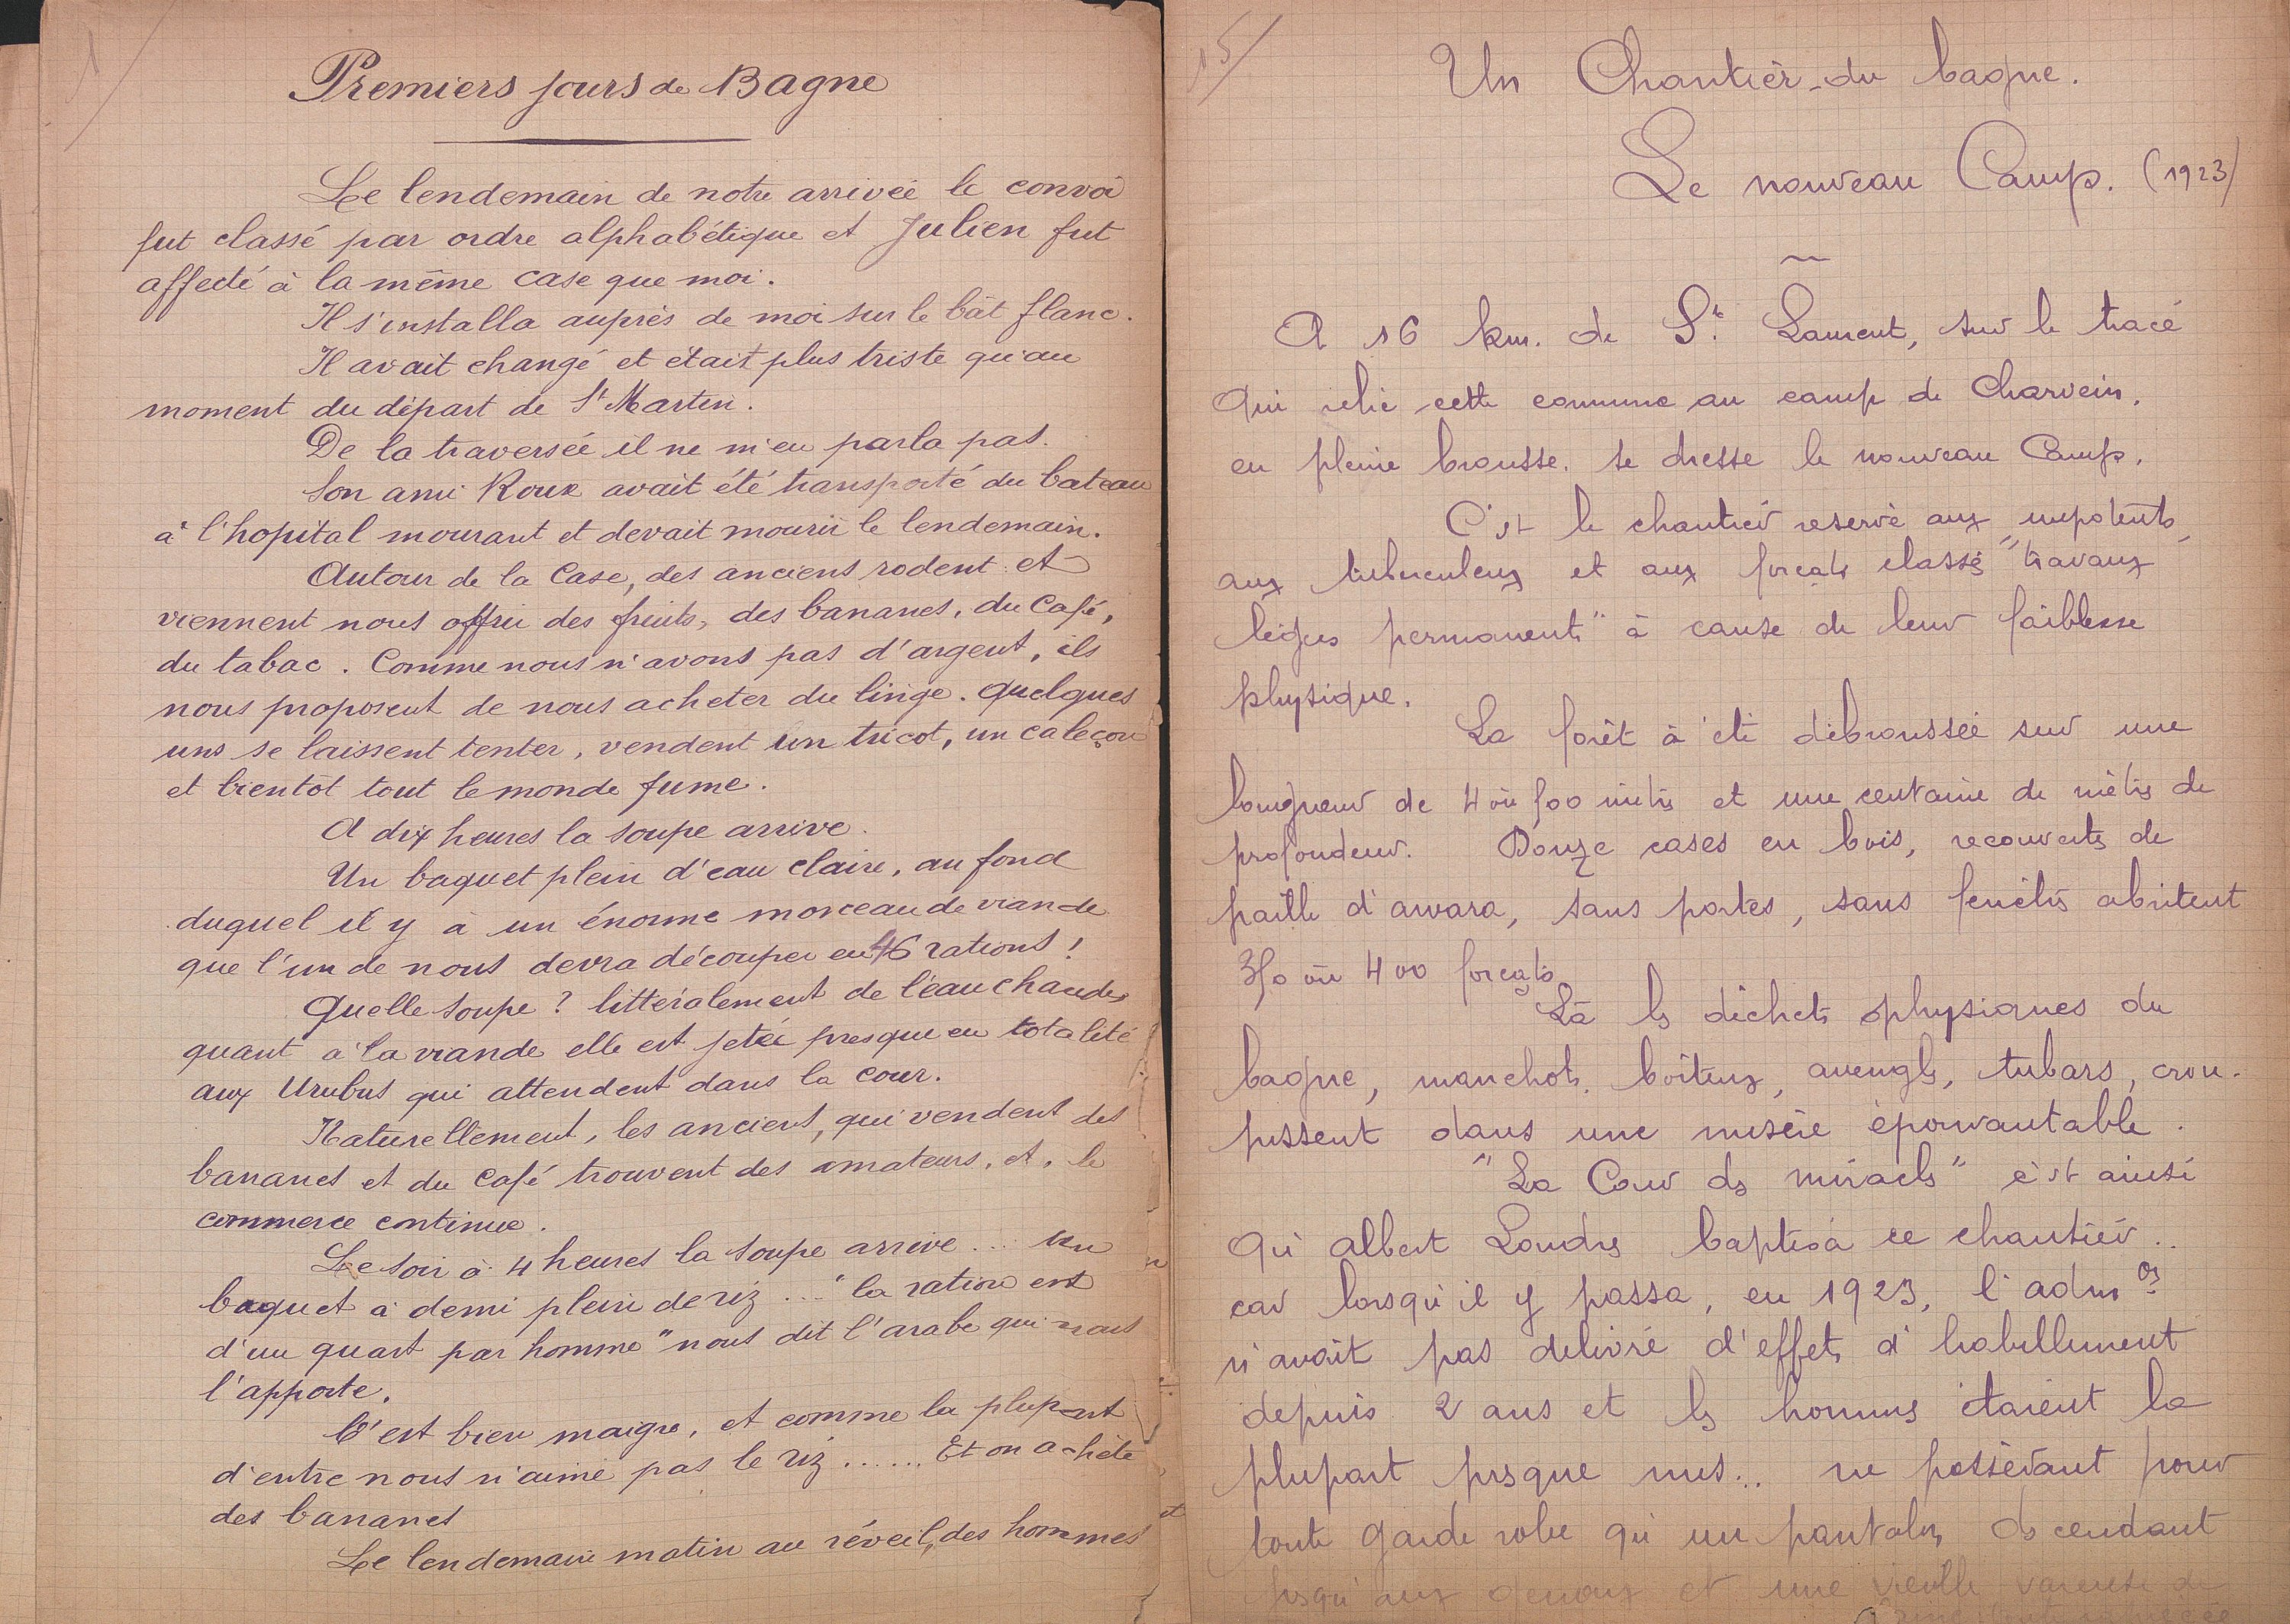 1
Premiers jours de Bagne
Le lendemain de notre arrivée le convoi
fut classé par ordre alphabétique et Julien fut
affecté à la même case que moi.
Il s'installa auprès de moi sur le bât flanc.
Il avait changé et était plus triste qu'au
moment du départ de St Martin.
De la traversée il ne m'en parla pas.
Son ami Roux avait été transporté du bateau
à l'hopital mourant et devait mourir le lendemain.
Autour de la Case, des anciens rodent et
viennent nous offrir des fruits, des bananes, du Café,
du tabac. Comme nous n'avons pas d'argent, ils
nous proposent de nous acheter du linge. Quelques
uns se laissent tenter, vendent un tricot, un caleçon
et bientôt tout le monde fume.
A dix heures la soupe arrive.
Un baquet plein d'eau claire, au fond
duquel il y à un énorme morceau de viande
que l'un de nous devra découper en 46 rations !
Quelle soupe ? littéralement de l'eau chaude,
quant à la viande elle est jetée presque en totalité
aux Urubus qui attendent dans la cour.
Naturellement, les anciens, qui vendent des
bananes et du Café trouvent des amateurs, et, le
commerce continue.
Le soir à 4 heures la soupe arrive... un
baquet à demi plein de riz ... "la ration est
d'un quart par homme" nous dit l'arabe qui nous
l'apporte.
C'est bien maigre, et comme la plupart
d'entre nous n'aime pas le riz ...... Et on achète
des bananes
Le lendemain matin au réveil, des hommes
15
Un Chantier du bagne.
Le nouveau Camp. (1923)
A 16 km. de St. Laurent, sur le tracé
qui relie cette commune au camp de Charvein,
en pleine brousse. se dresse le nouveau Camp.
C'est le chantier reservé aux impotents,
aux tuberculeux et aux forçats classés "travaux
légers permanents" à cause de leur faiblesse
physique.
La forêt à été débroussée sur une
longueur de 4 ou 500 mètres et une centaine de mètres de
profondeur. Douze cases en bois, recouvertes de
paille d'awara, sans portes, sans fenêtres abritent
350 ou 400 forçats.
Là les déchets physiques du
bagne, manchots, boiteux, aveugles, tubars, crou-
pissent dans une misère épouvantable.
"La Cour des miracles" c'est ainsi
qu'Albert Londres baptisa ce chantier..
car lorsqu'il y passa, en 1923, l'admon
n'avait pas delivré d'effets d'habillement
depuis 2 ans et les hommes étaient la
plupart presque nus... ne possédant pour
toute garde robe qu'un pantalon descendant
jusqu'aux genoux et une vieille vareuse de